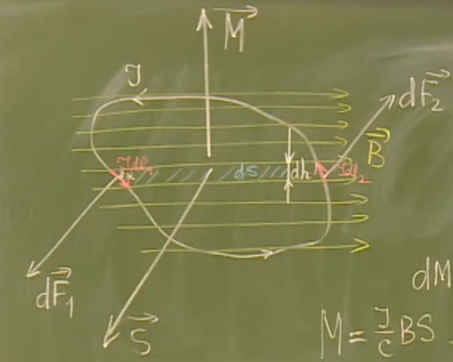 M⃗
J
dF⃗₂
B⃗
Jdl₁
dS
dh
Jdl₂
α
dF⃗₁
S⃗
dM
M = J/c BS